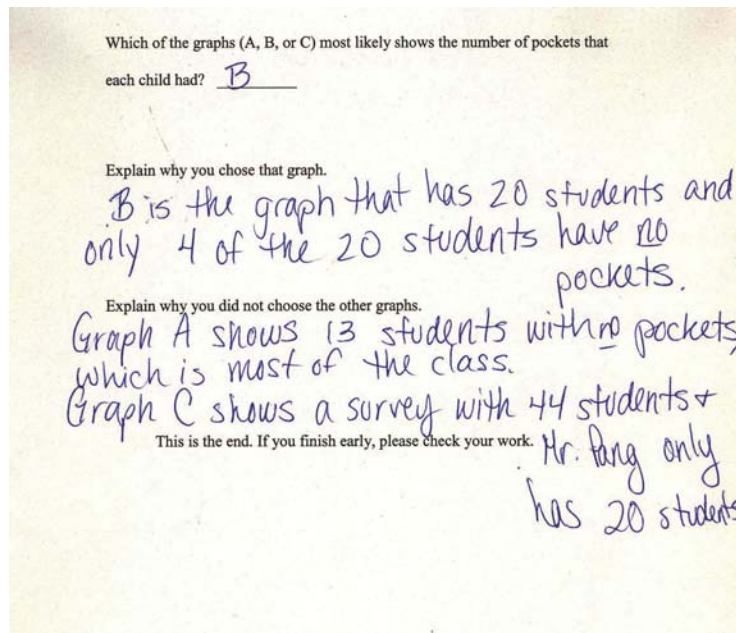 Which of the graphs (A, B, or C) most likely shows the number of pockets that
each child had? B
Explain why you chose that graph.
B is the graph that has 20 students and
only 4 of the 20 students have no
pockets.
Explain why you did not choose the other graphs.
Graph A shows 13 students with no pockets,
which is most of the class.
Graph C shows a survey with 44 students +
This is the end. If you finish early, please check your work. Mr. Pang only
has 20 students